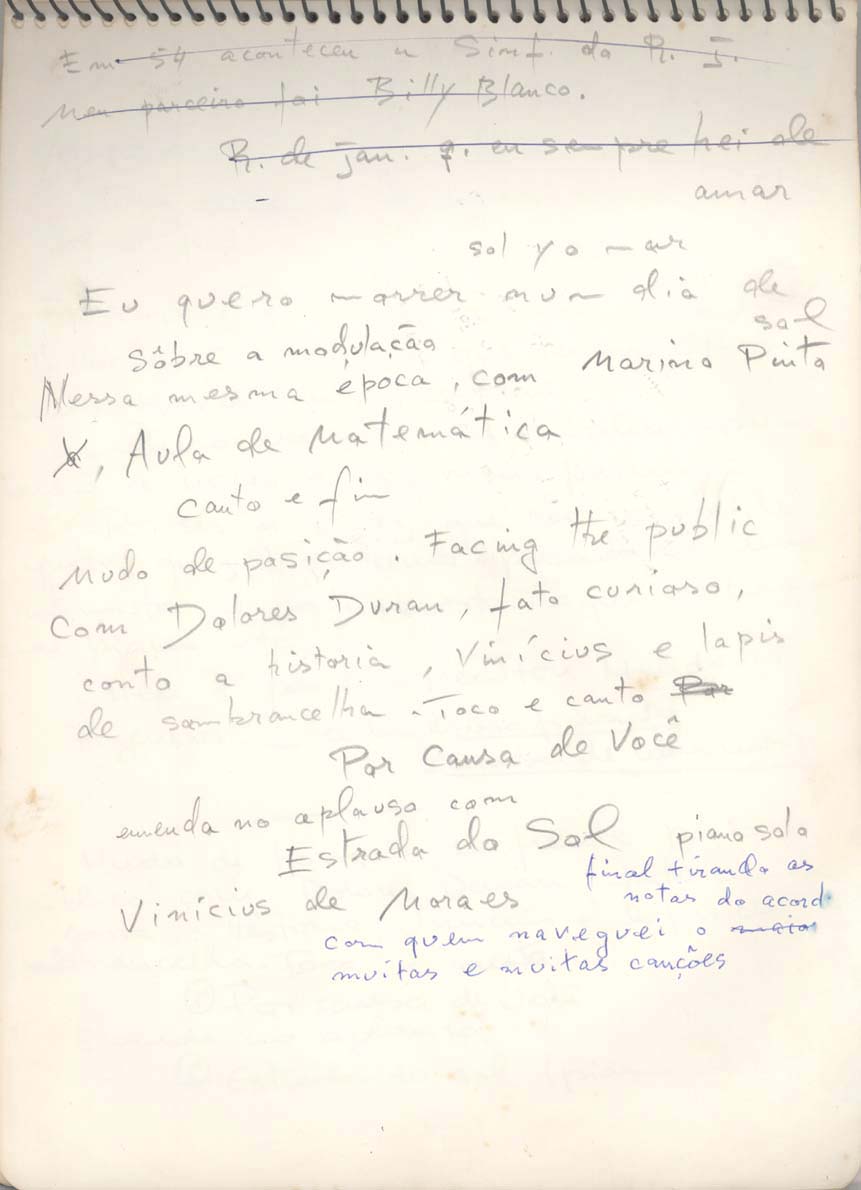 Em 54 aconteceu a Sinf. do R. J.
Meu parceiro foi Billy Blanco.
R. de Jan. q. eu sempre hei de
amar
sol y o mar
Eu quero morrer num dia de
sol
Sôbre a modulação
Nessa mesma época, com Marino Pinto
, Aula de Matemática
canto e fim
Mudo de posição. Facing the public
Com Dolores Duran, fato curioso,
conto a historia, Vinícius e lapis
de sombrancelha. Toco e canto Por
Por Causa de Você
emenda no aplauso com
Estrada do Sol piano solo
final tirando as
Vinicius de Moraes notas do acord.
com quem naveguei o maior
muitas e muitas canções